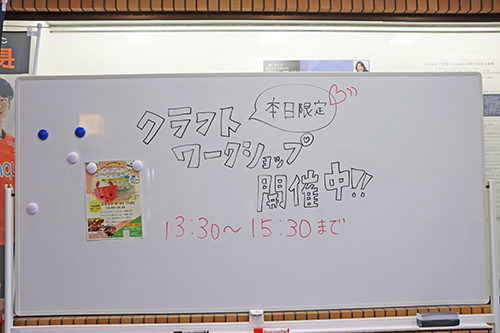 本日限定
クラフト
ワークショップ
開催中!!
13:30～15:30まで